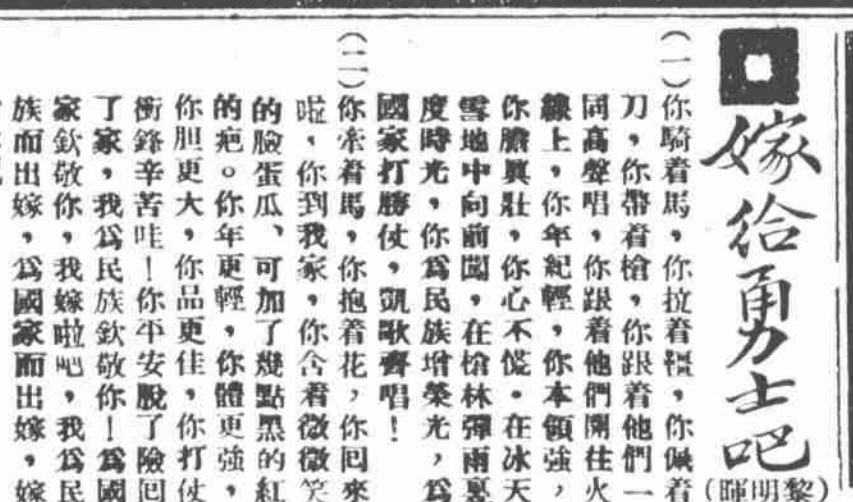 嫁給勇士吧
(黎明暉)
(一)你騎着馬，你拉着韁，你佩着
刀，你帶着槍，你跟着他們一
同高聲唱，你跟着他們開往火
線上，你年紀輕，你本領強，
你膽眞壯，你心不慌。在冰天
雪地中向前闖，在槍林彈雨裏
度時光，你爲民族增榮光，爲
國家打勝仗，凱歌齊唱！
(二)你牽着馬，你抱着花，你回來
啦，你到我家，你含着微微笑
的臉蛋瓜、可加了幾點黑的紅
的疤。你年更輕，你體更強，
你胆更大，你品更佳，你打仗
衝鋒辛苦哇！你平安脫了險回
了家，我爲民族欽敬你！爲國
家欽敬你，我嫁啦吧，我爲民
族而出嫁，爲國家而出嫁，嫁